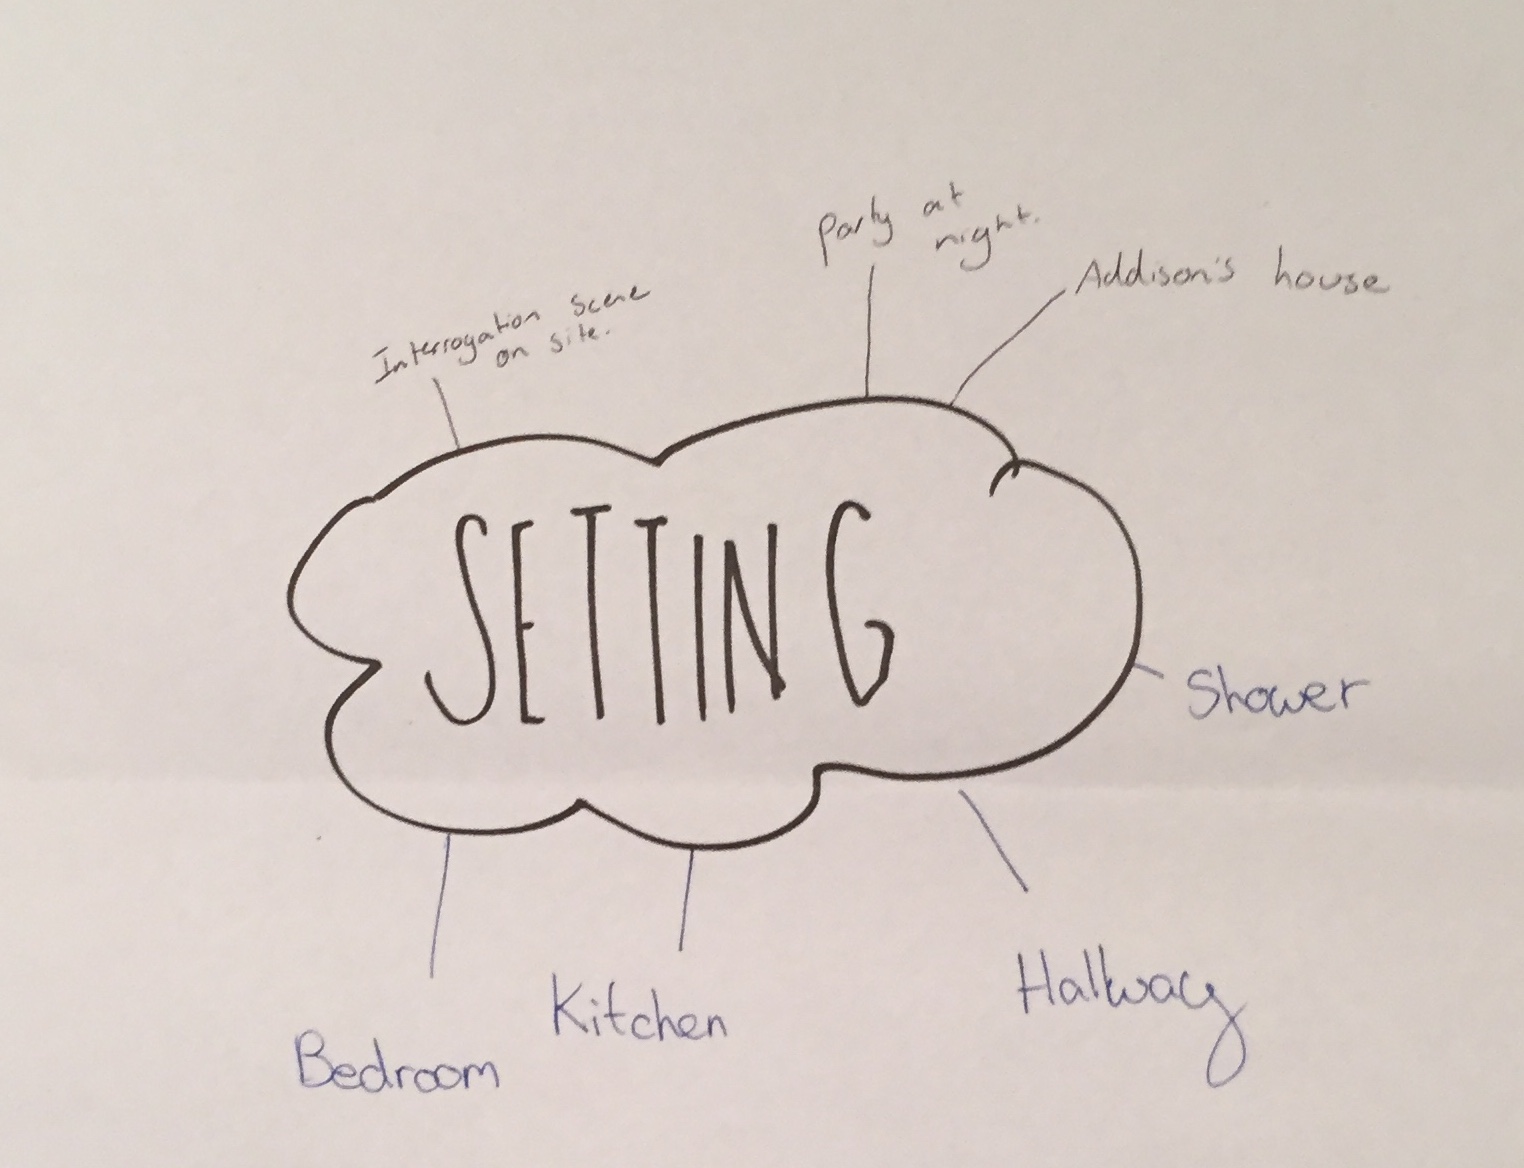 Party at
night.
Addison's house
Interrogation Scene
on site.
SETTING
Shower
Hallway
Kitchen
Bedroom